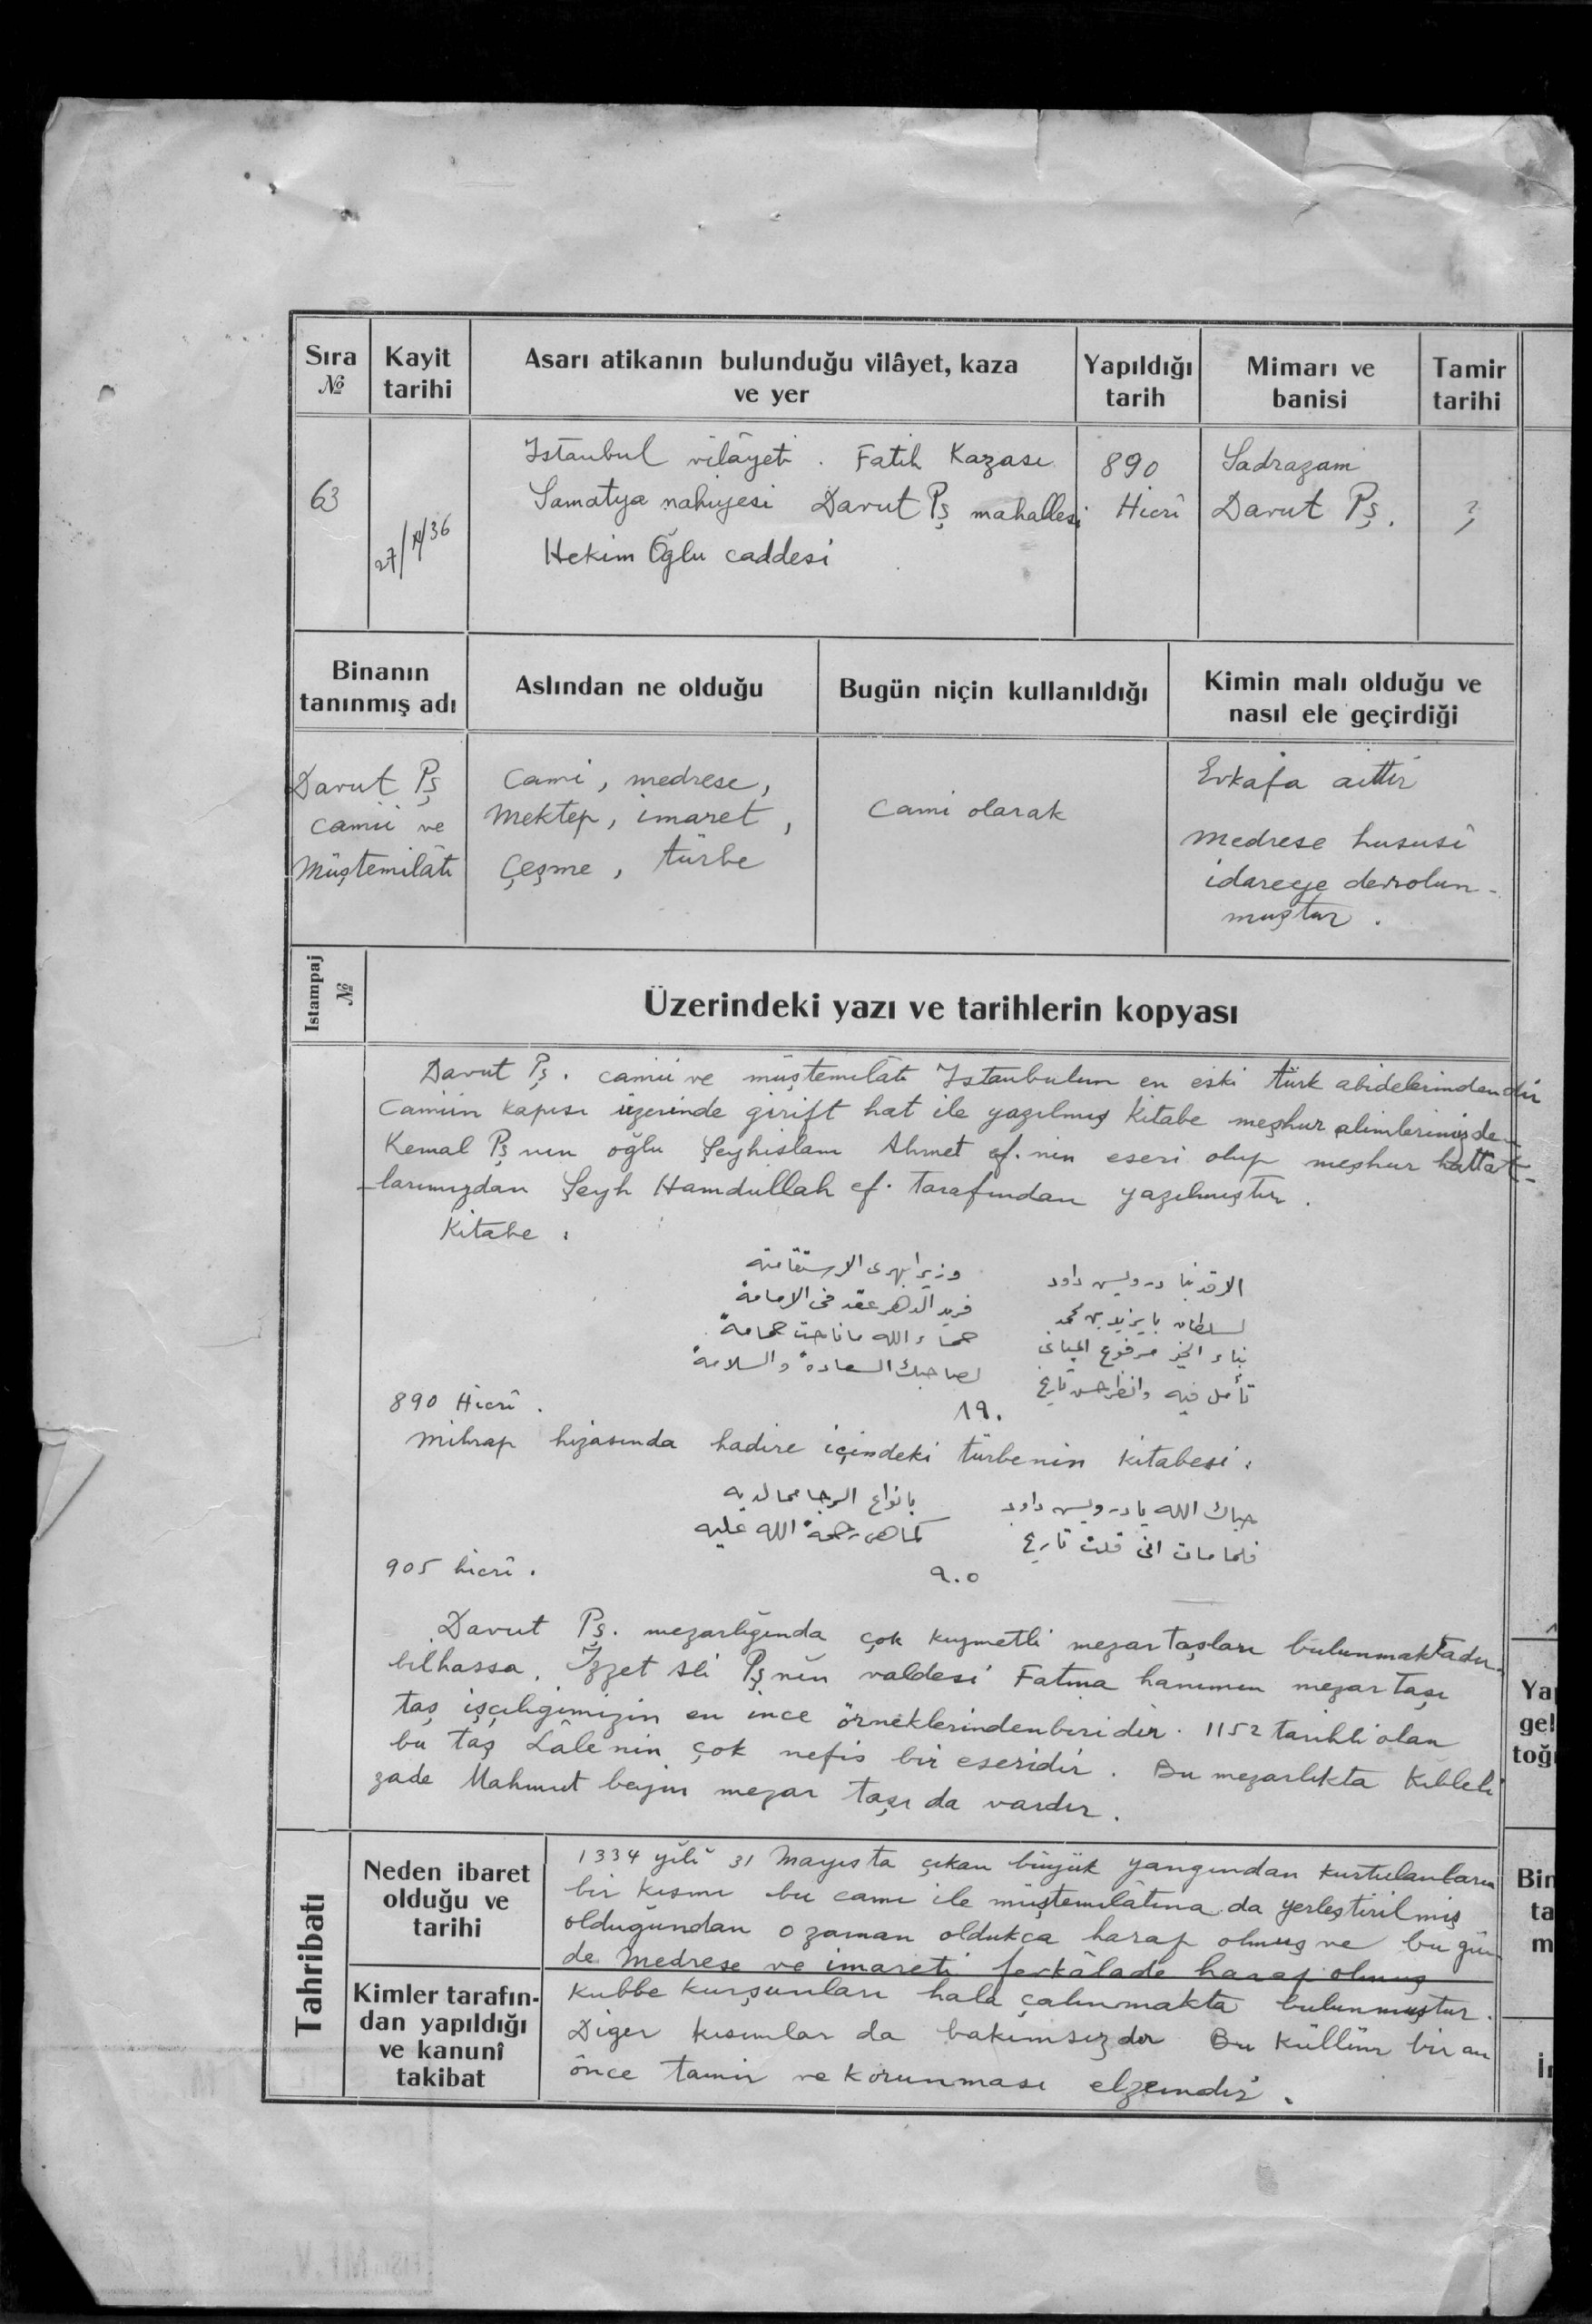 Sıra
№
Kayit
tarihi
Asarı atikanın bulunduğu vilâyet, kaza
ve yer
Yapıldığı
tarih
Mimarı ve
banisi
Tamir
tarihi
63
27/X/36
Istanbul vilâyeti . Fatih Kazası
Samatya nahiyesi Davut Pş mahallesi
Hekim Oğlu caddesi
890
Hicrî
Sadrazam
Davut Pş.
?
Binanın
tanınmış adı
Aslından ne olduğu
Bugün niçin kullanıldığı
Kimin malı olduğu ve
nasıl ele geçirdiği
Davut Pş
camii ve
Müştemilâtı
Cami, medrese,
Mektep, imaret,
Çeşme, türbe
Cami olarak
Evkafa aittir
Medrese hususî
idareye devrolun-
muştur .
Istampaj
№
Üzerindeki yazı ve tarihlerin kopyası
Davut Pş. camii ve müştemilâtı Istanbulun en eski türk abidelerindendir
Camiin kapısı üzerinde girift hat ile yazılmış kitabe meşhur alimlerimizden
Kemal Pş nın oğlu Şeyhislam Ahmet ef. nin eseri olup meşhur hattat-
larımızdan Şeyh Hamdullah ef. tarafından yazılmıştır .
Kitabe :
الاقد بنا درويس داود وزيرا يهرى الاستقامته
لسلطان بايزيد بن محمد فريد الدهر عقد فى الامامة
بناء الخير مرفوع المبانى حماء الله ما ناحت حمامة
تأمل فيه وانظر حسن تاريخ لصاحبك السعادة والسلامة
890 Hicrî .
٨٩٠
Mihrap hizasında hadire içindeki türbenin kitabesi :
حباك الله يا درويس داود بانواع الرجا مما لديه
فلما مات انى قلت تاريخ كماهى رحمة الله عليه
905 hicrî .
٩٠٥
Davut Pş. mezarlığında çok kıymetli mezar taşları bulunmaktadır.
bilhassa, Izzet Ali Pş nın valdesi Fatma hanımın mezar taşı
taş işçiliğimizin en ince örneklerinden biridir. 1152 tarihli olan
bu taş Lâle nin çok nefis bir eseridir . Bu mezarlıkta Kıbleli
zade Mahmut beyin mezar taşı da vardır .
Tahribatı
Neden ibaret
olduğu ve
tarihi
1334 yılı 31 Mayısta çıkan büyük yangından kurtulanların
bir kısmı bu cami ile müştemilâtına da yerleştirilmiş
olduğundan o zaman oldukça harap olmuş ve bu gün
de Medrese ve imareti fevkâlade harap olmuş
Kimler tarafın-
dan yapıldığı
ve kanunî
takibat
Kubbe kurşunları hala çalınmakta bulunmuştur .
Diger kısımlar da bakımsızdır Bu küllün bir an
önce tamir ve korunması elzemdir .
Ya
gel
toğ
Bin
ta
m